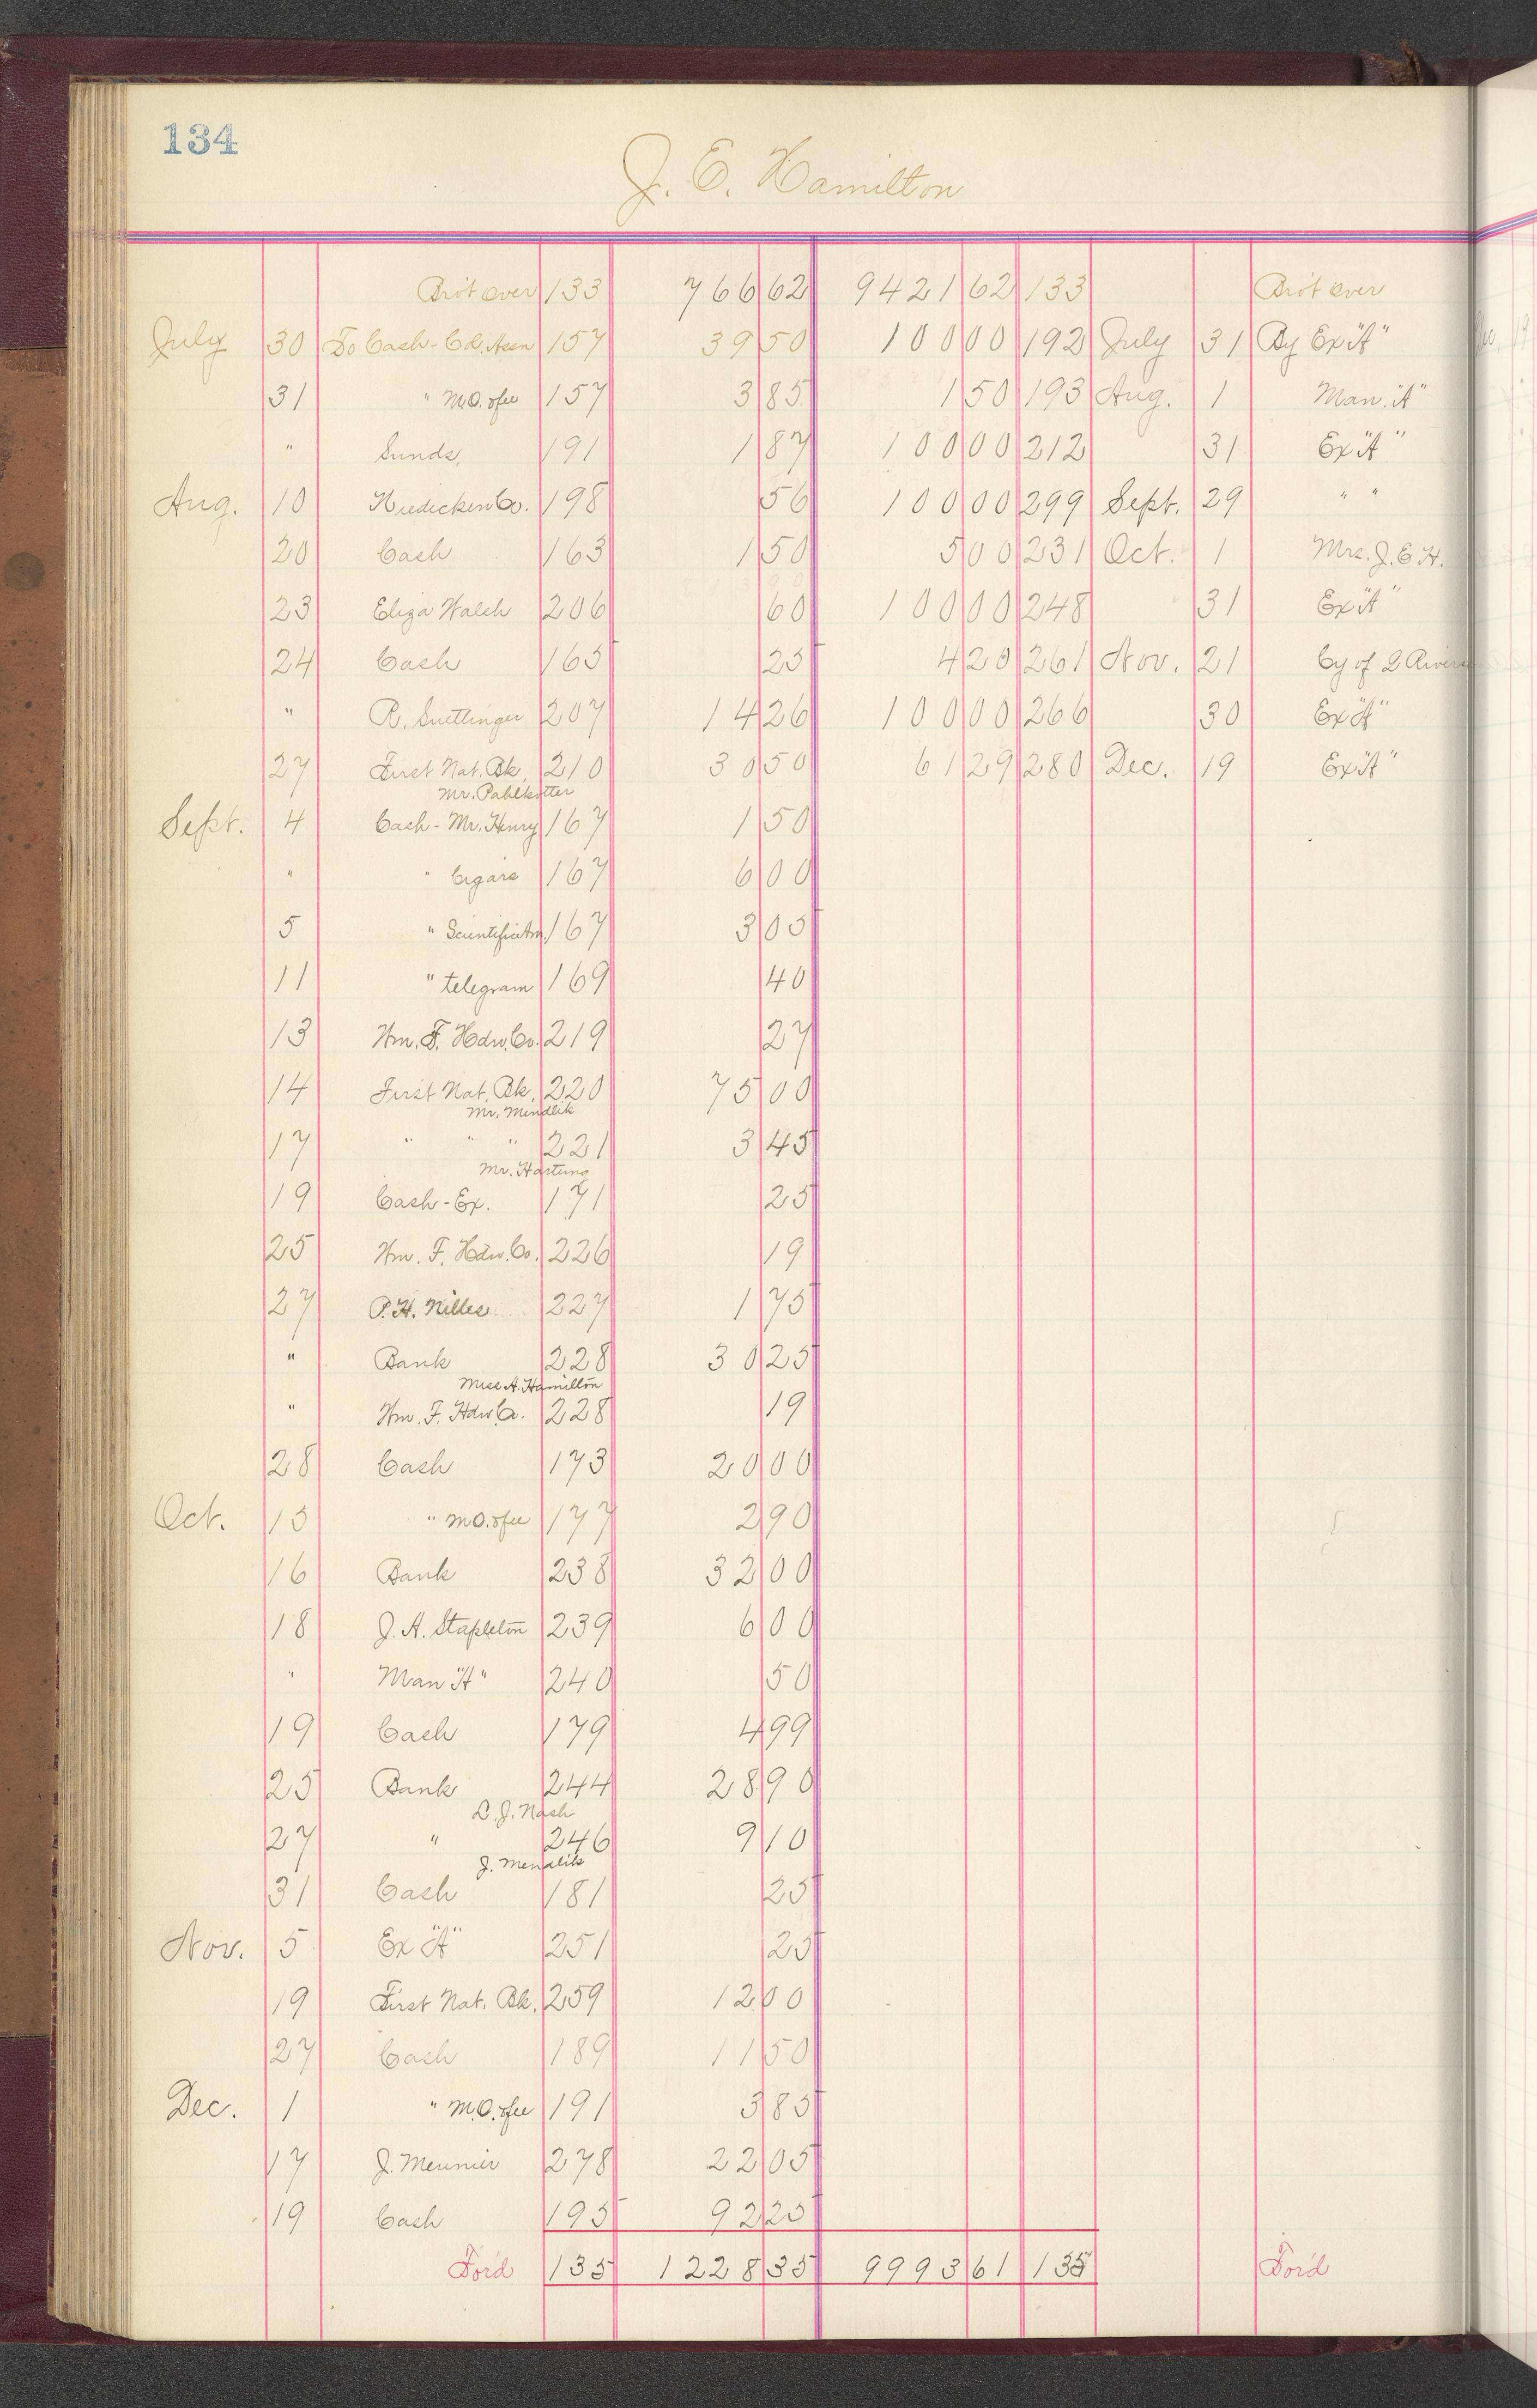 134
J. E. Hamilton
Bro't over 133 766 62 9421 62 133 Bro't over
July 30 To Cash - Cl. Assn 157 39 50 100 00 192 July 31 By Ex "A"
31 " M.O. & fee 157 3 85 1 50 193 Aug. 1 Man. "A"
" Sunds. 191 1 87 100 00 212 31 Ex "A"
Aug. 10 Co. 198 56 100 00 299 Sept. 29 " "
20 Cash 163 1 50 5 00 231 Oct. 1 Mrs. J. E. H.
23 Eliza Walsh 206 60 100 00 248 31 Ex "A"
24 Cash 165 25 4 20 261 Nov. 21 Cy of 2 Rivers
" R. Suettinger 207 14 26 100 00 266 30 Ex "A"
27 First Nat. Bk. 210 30 50 61 29 280 Dec. 19 Ex "A"
Mr. Pahlkotter
Sept. 4 Cash - Mr. Henry 167 1 50
" " Cigars 167 6 00
5 " Scientific Am. 167 3 05
11 " telegram 169 40
13 Wm. F. Hdw. Co. 219 27
14 First Nat. Bk. 220 75 00
Mr. Mendlik
17 " " " 221 3 45
Mr. Hartung
19 Cash - Ex. 171 25
25 Wm. F. Hdw. Co. 226 19
27 P. H. Nilles 227 1 75
" Bank 228 30 25
Miss A. Hamilton
" Wm. F. Hdw Co. 228 19
28 Cash 173 20 00
Oct. 15 " M.O. & fee 177 2 90
16 Bank 238 32 00
18 J. A. Stapleton 239 6 00
" Man "A" 240 50
19 Cash 179 4 99
25 Bank 244 28 90
L. J. Nash
27 " 246 9 10
J. Mendlik
31 Cash 181 25
Nov. 5 Ex "A" 251 25
19 First Nat. Bk. 259 12 00
27 Cash 189 11 50
Dec. 1 " M.O. & fee 191 3 85
17 J. Meunier 278 22 05
19 Cash 195 92 25
For'd 135 1228 35 9993 61 135 For'd